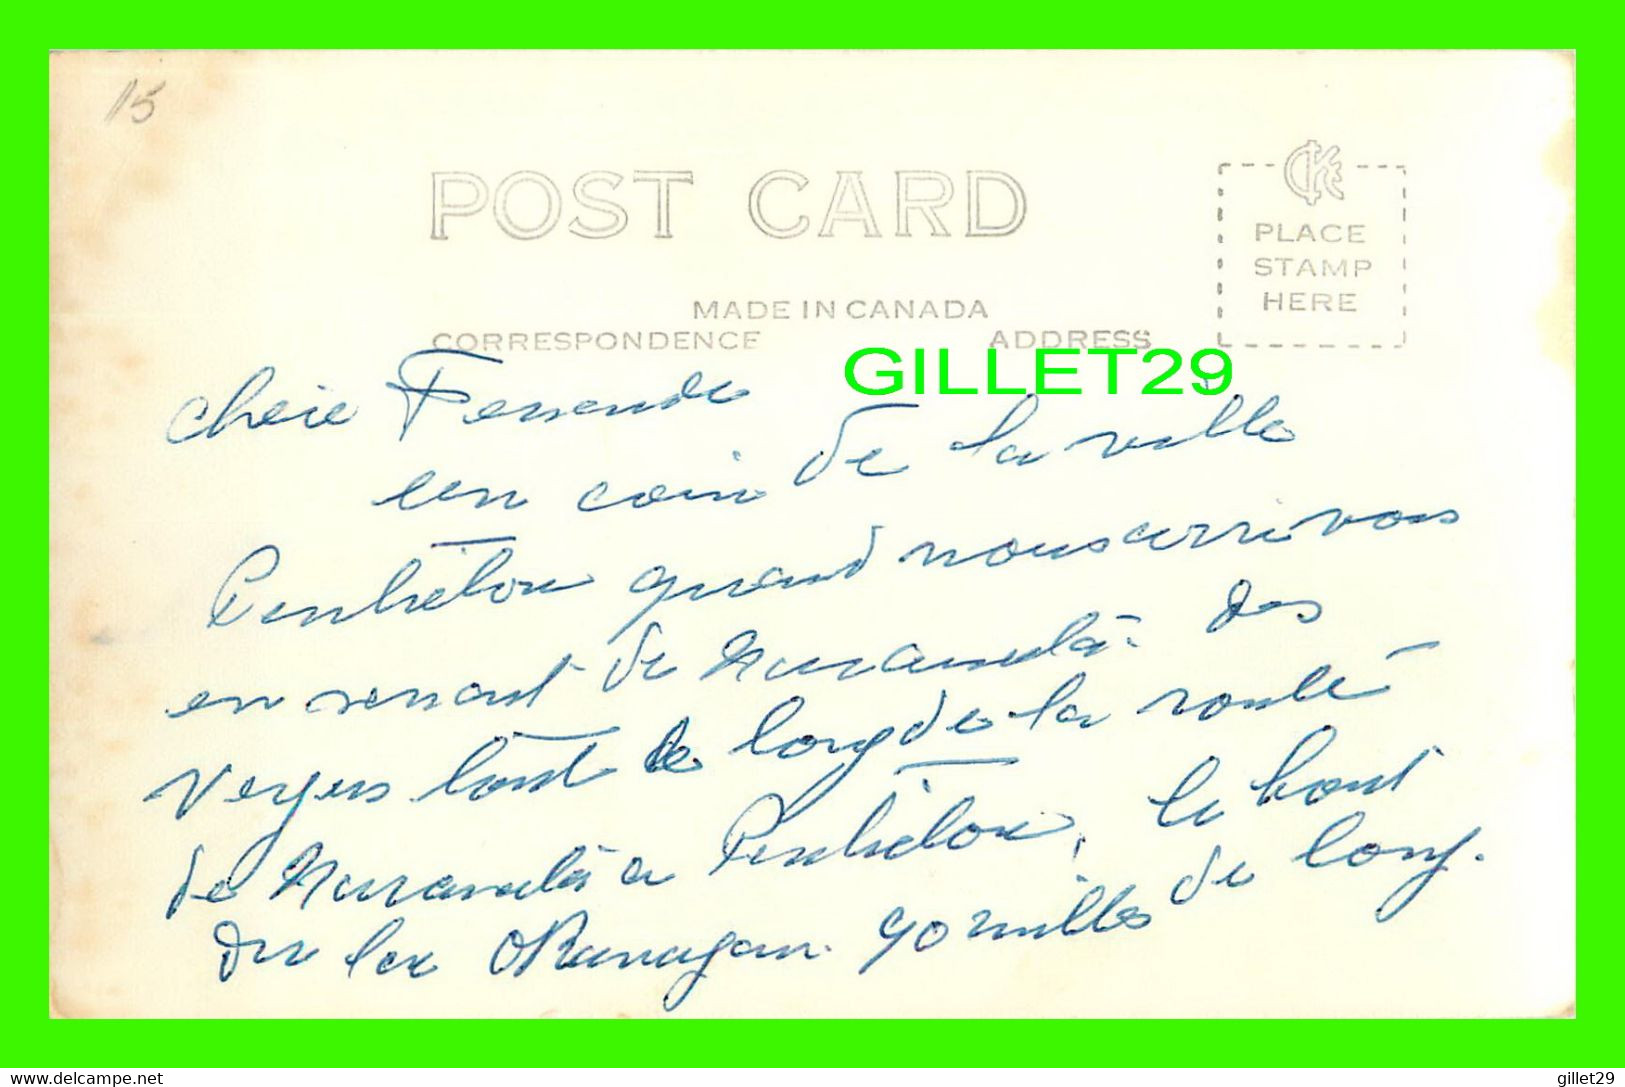 15
POST CARD
CKE
PLACE
STAMP
HERE
MADE IN CANADA
CORRESPONDENCE ADDRESS
GILLET29
chère
un coin de la ville
Penticton quand nous arrivons
en venant de Naramata. Des
Vergers tout le long de la route
de Naramata a Penticton, le bout
du lac Okanagan. 90 milles de long.
https://www.delcampe.net
gillet29